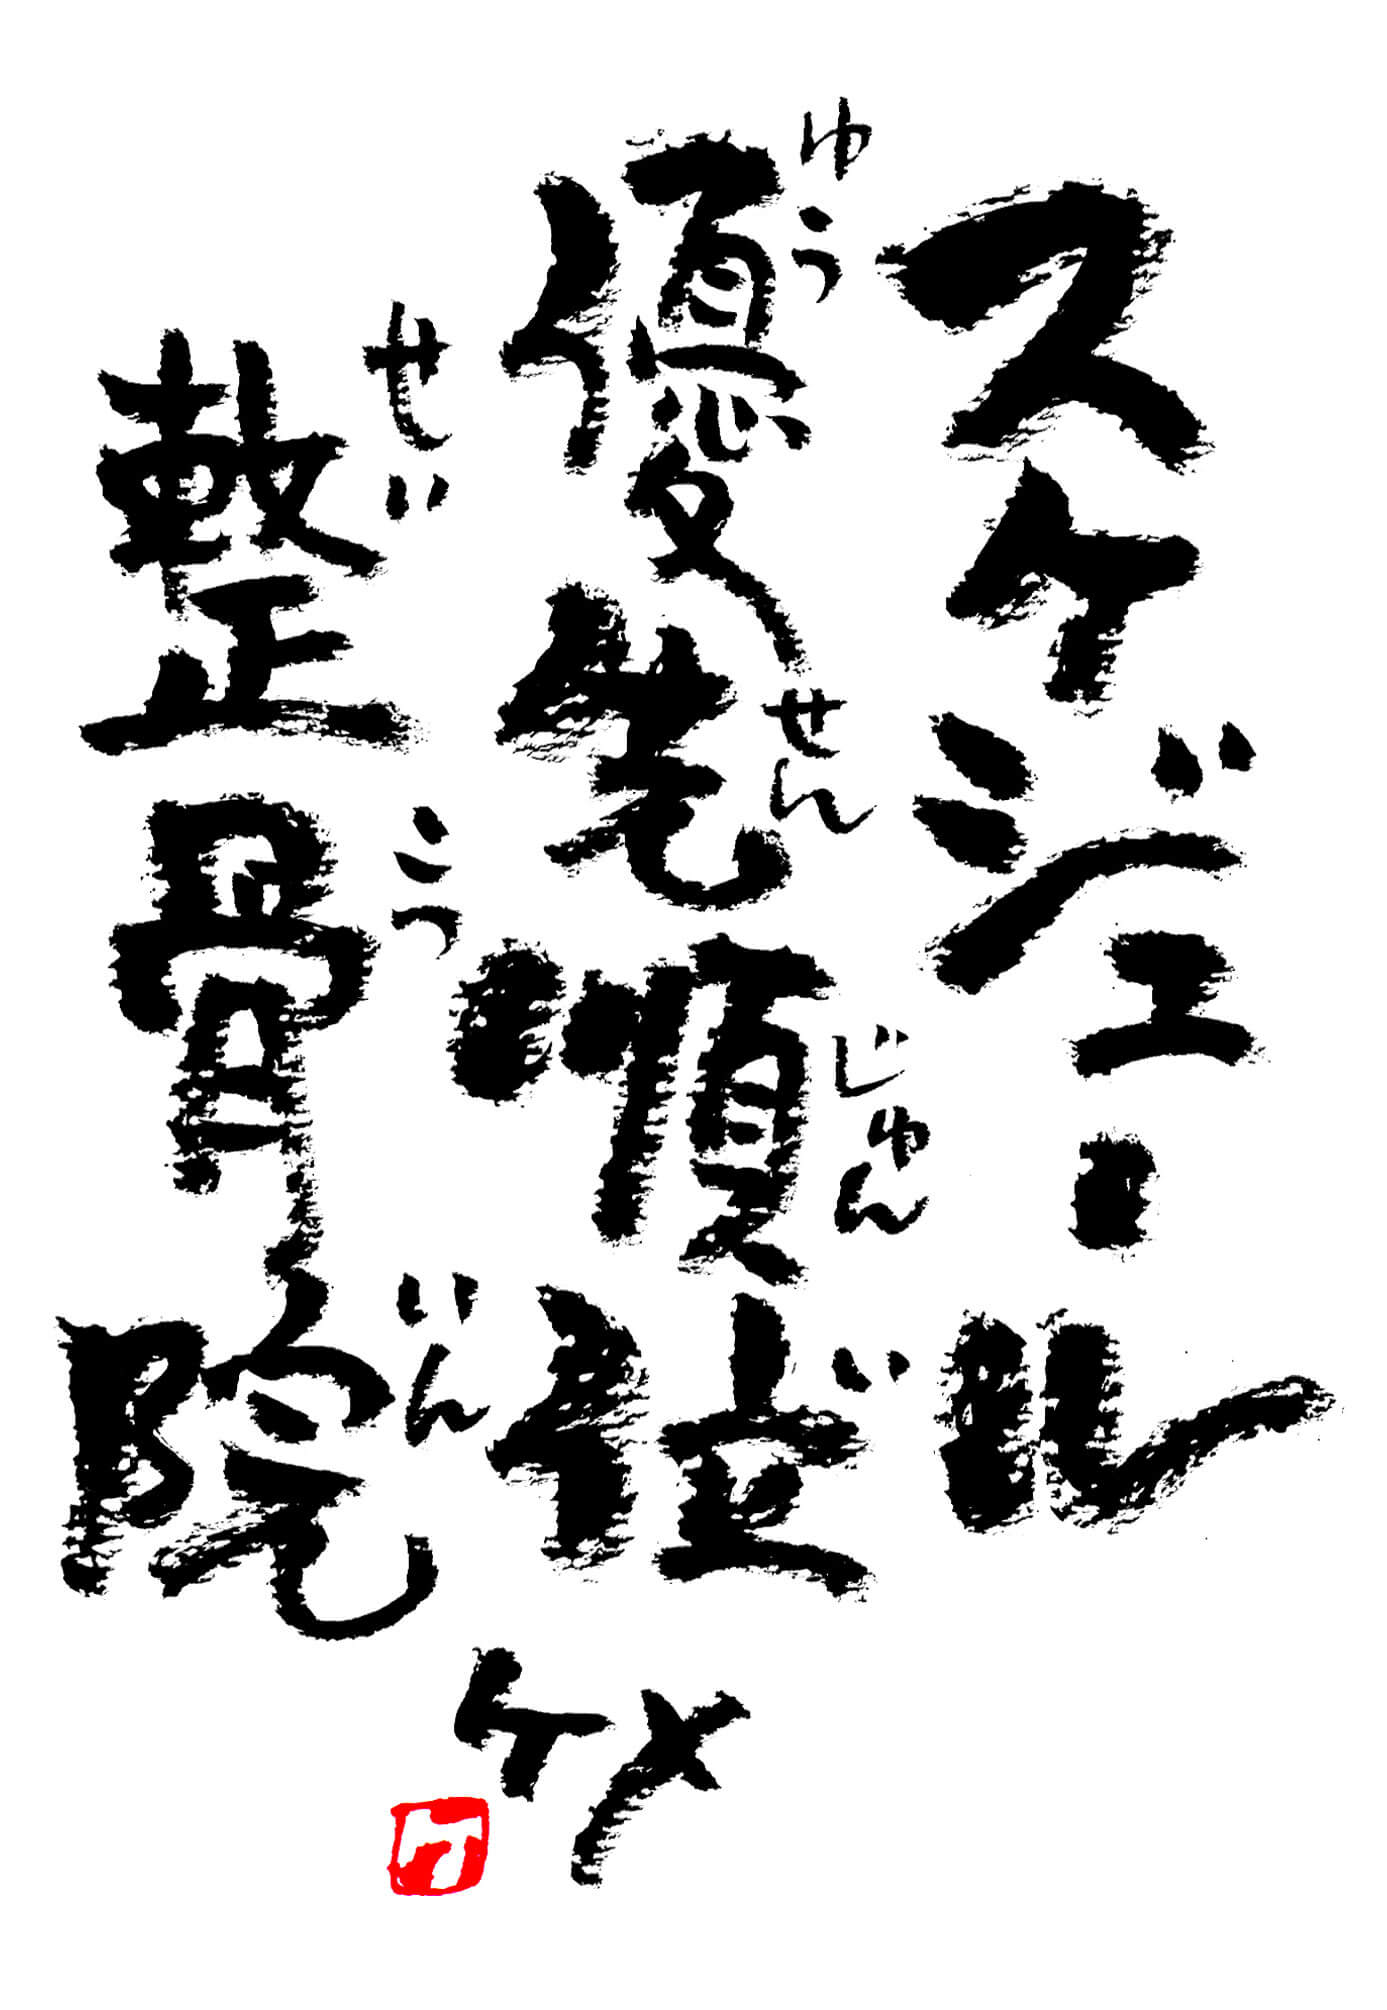 スケジュール
ゆう せん じゅん い
優先順位
せい こつ いん
整骨院
ケメ
ケ